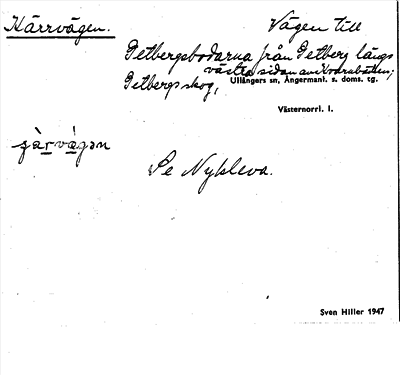 Kärrvägen.
Vägen till
Getbergsbodarna från Getberg längs
västra sidan av
Getbergsskog,
Ullångers sn, Ångermanl. s. doms. tg.
Västernorrl. l.
Se Nykleva.
Sven Hiller 1947